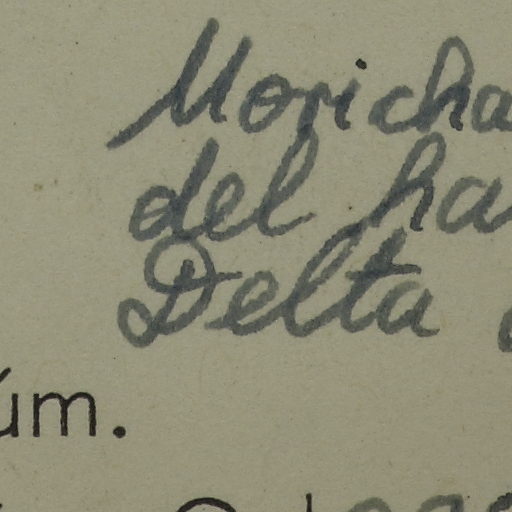 Moricha
del ha
Delta
úm.